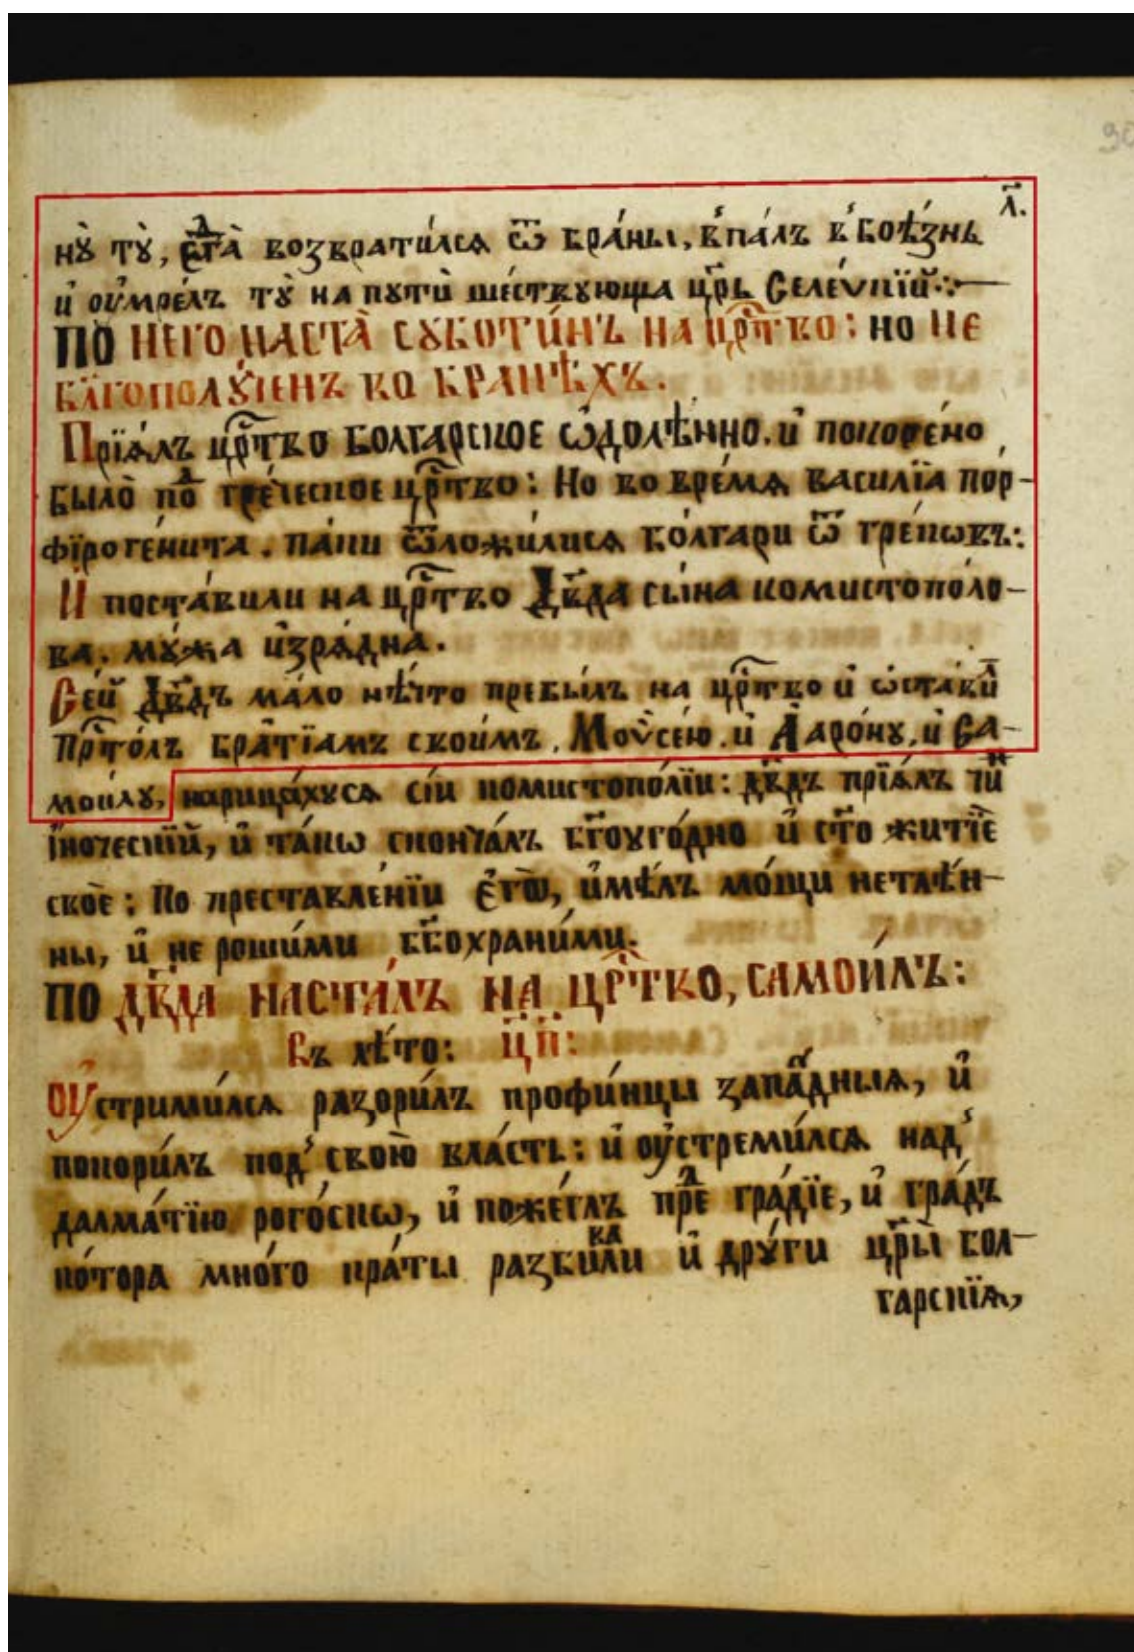 л҃.
нꙋ̀ тꙋ̀, єгдⷣа̀ возвратилсѧ ѿ бра́ны, в̾па́лъ в̾болѣ́знь
и҆ оу҆мре́лъ тꙋ̀ на пꙋти̂ ше́ствꙋюща цр҃ь Селеѵкїй:~
ПО НЕГО НАСТА̀ СꙊБОТИ́НЪ НА ЦРⷭ҇ТВО: НО НЕ
БЛ҃ГОПОЛꙊ́ЧЕНЪ ВО БРАНѢ́ХЪ.
Прїѧ́лъ црⷭ҇тво болгарское ѡ҆долѣ́нно. и҆ покоре́но
было̀ поⷣ гре́ческое црⷭ҇тво: Но во вре́мѧ василїа пор-
фїроге́нита. па́ки ѿложи́лисѧ бо́лгари ѿ гре́кѡвъ:
И поста́вили на црⷭ҇тво Дв҃да сы́на комистополо-
ва. мꙋ́жа и҆зрѧ́дна.
Се́й Дв҃дъ ма́ло нѣ́что пребы́лъ на црⷭ҇тво и҆ ѡ҆ста́виⷧ
Прⷭ҇то́лъ бра́тїамъ свои́мъ. Моѵ̈се́ю. и҆ А҆аро́нꙋ. и҆ Са-
мои́лꙋ, нарица́хꙋсѧ сі́и комистопо́лїи: дв҃дъ прїѧ́лъ чиⷩ
и҆́ноческїй, и҆ та́кѡ сконча́лъ бг҃оꙋго́дно и҆ ст҃о житїе
ско̀е: По преставле́нїи є҆гѡ̀, и҆мѣ́лъ мо́щи нетлѣ́н-
ны, и҆ не роши́ми бг҃охрани́ми.
ПО ДВ҃ДА НАСТА́ЛЪ НА ЦРⷭ҇ТВО, САМОИ́ЛЪ:
въ лѣ́то: ЦП҃:
Оу҆стрими́лсѧ разори́лъ профи́нцы запа́дныѧ, и҆
покори́лъ под̾ свою̀ вла́сть: и҆ оу҆стреми́лсѧ над̾
далма́тїю рого́скѡ, и҆ поже́глъ преⷣ гра́дїе, и҆ гра́дъ
ко́тора мно́го кра́ты разбиваⷧи и҆ дрꙋ́ги цр҃ы̀ бол-
гарскїѧ,